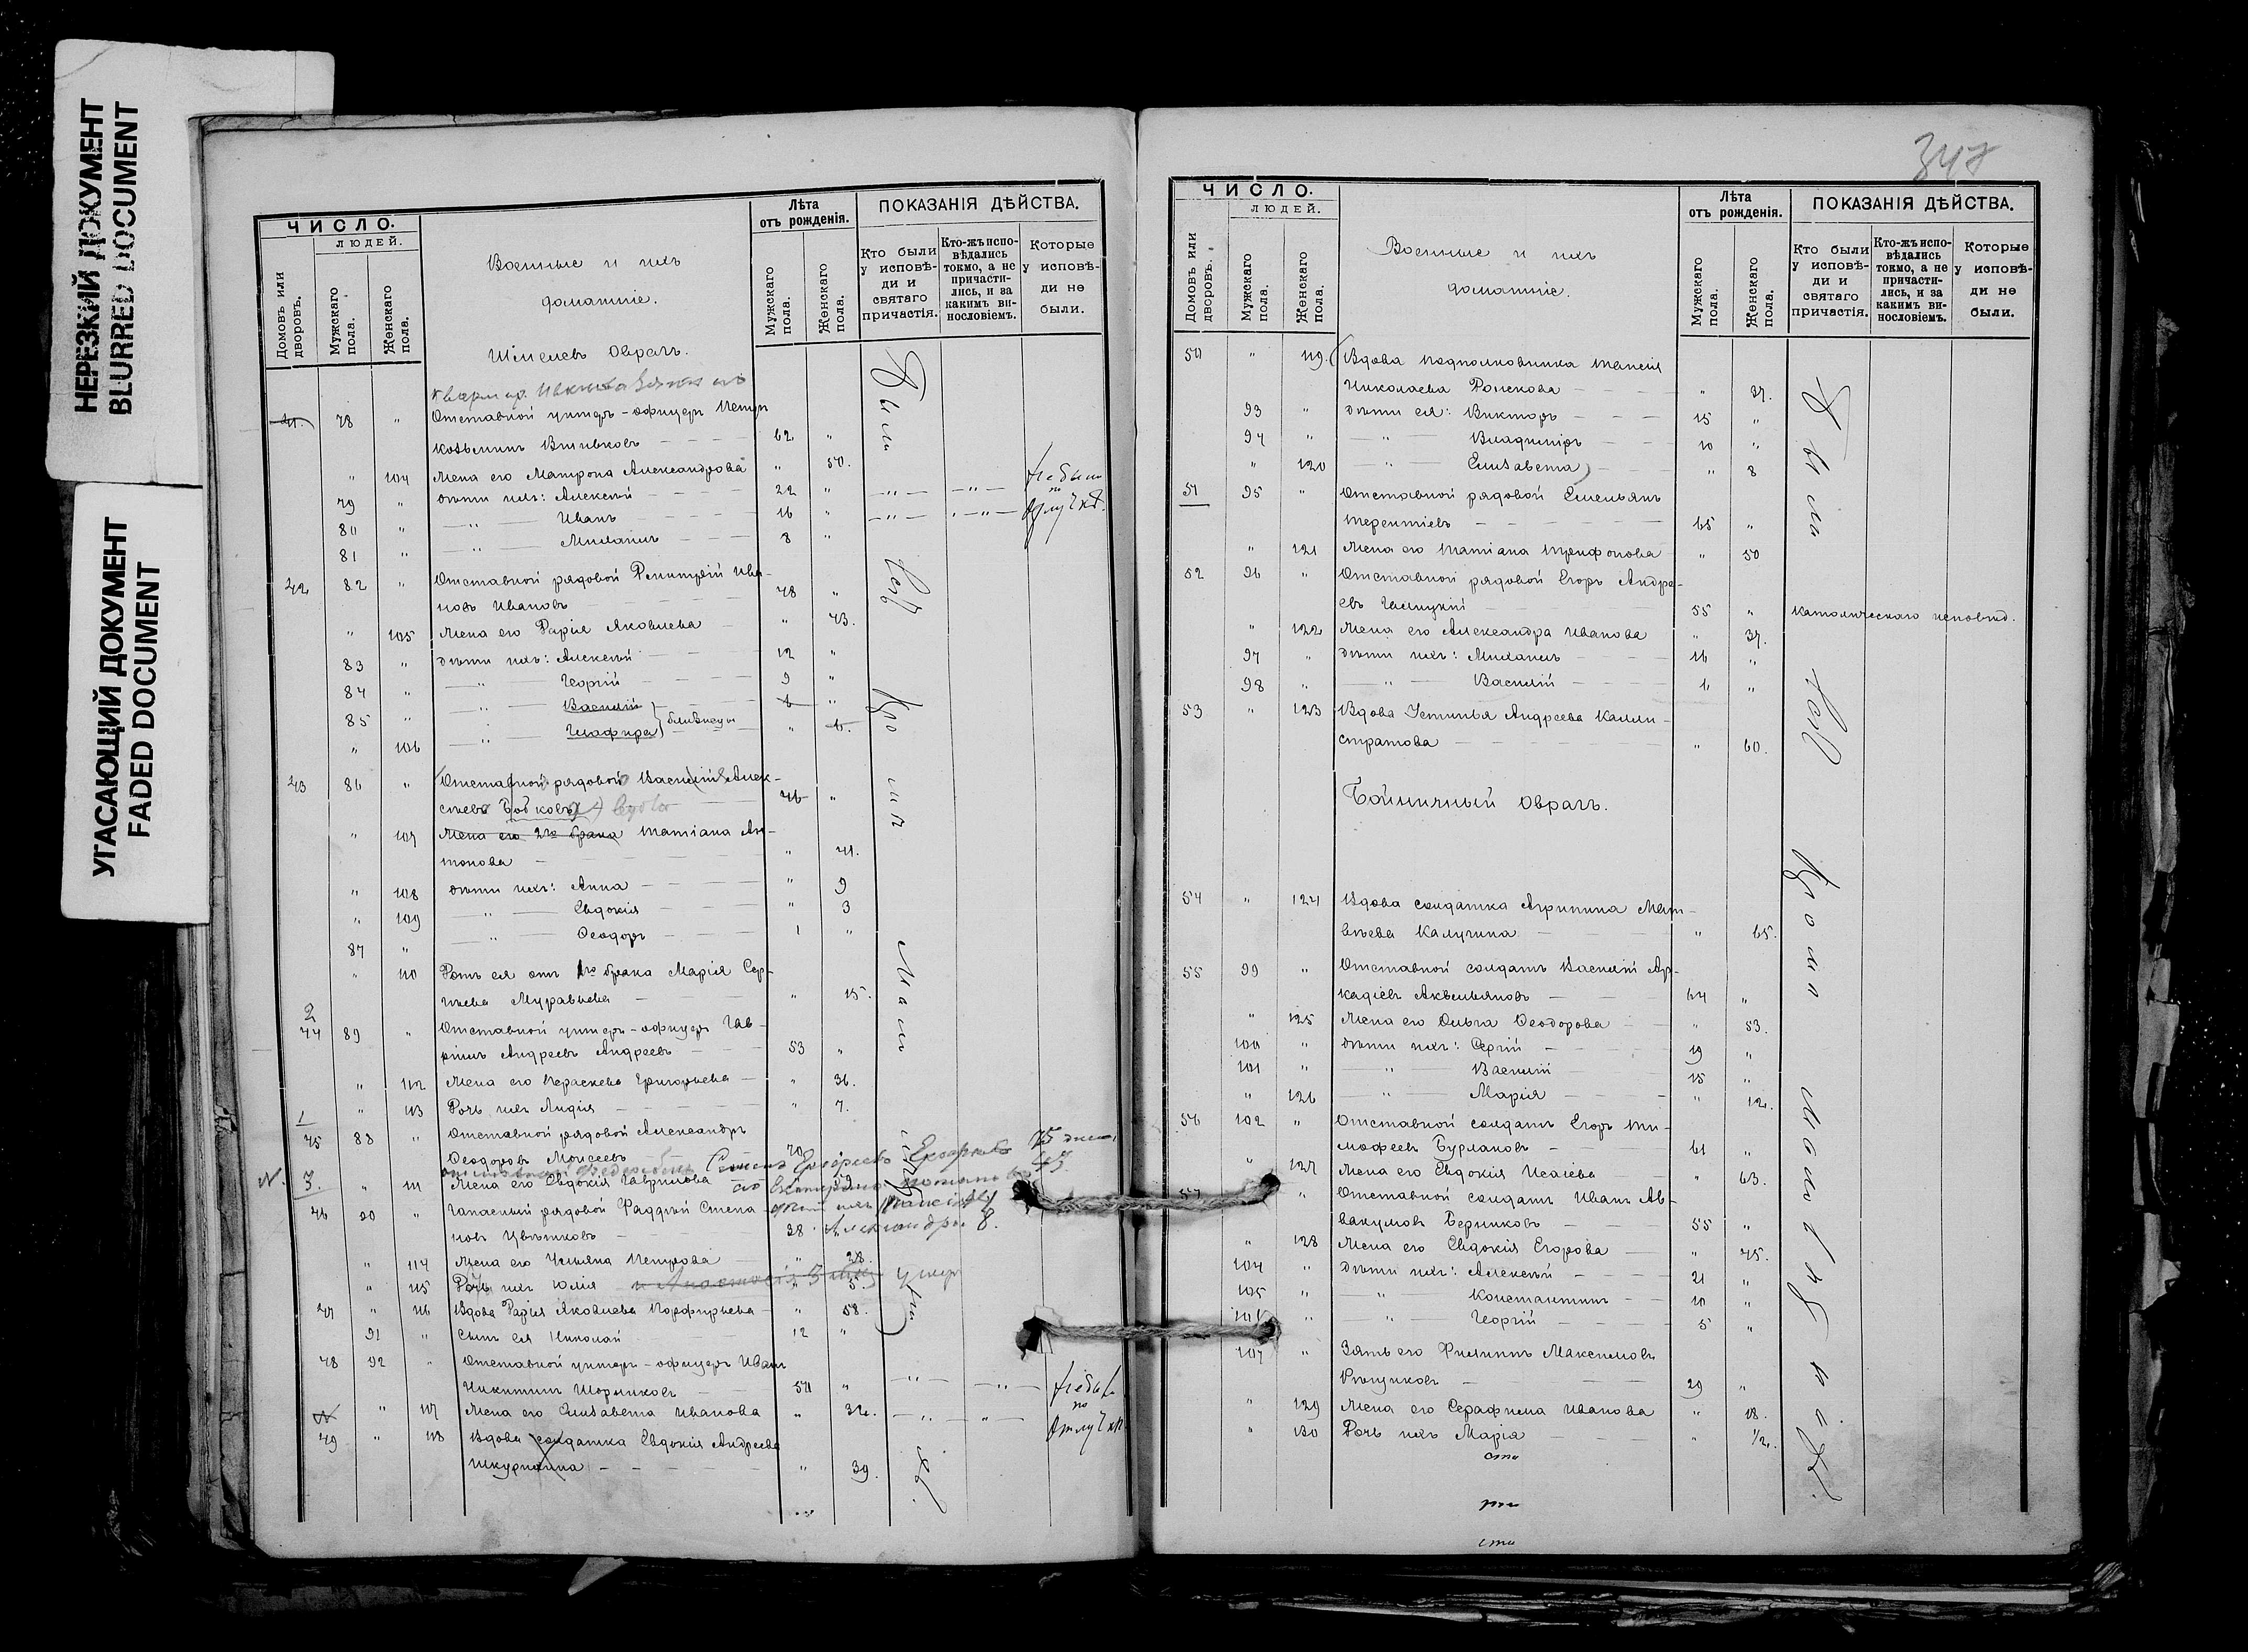 НЕРЕЗКИЙ ДОКУМЕНТ
BLURRED DOCUMENT
УГАСАЮЩИЙ ДОКУМЕНТ
FADED DOCUMENT
ЧИСЛО.
ЛЮДЕЙ.
Домовъ или дворовъ.
Мужскаго пола.
Женскаго пола.
Военные и ихъ
домашніе.
Лѣта
отъ рожденія.
Мужскаго пола.
Женскаго пола.
ПОКАЗАНІЯ ДѢЙСТВА.
Кто были у исповѣди и святаго причастія.
Кто-жъ исповѣдались токмо, а не причастились, и за какимъ винословіемъ.
Которые у исповѣди не были.
Шипелевъ оврагъ.
41. 78 " Отставной унтеръ-офицеръ Петръ
Козьминъ - - - 62 "
" 104 Жена его Матрона Александрова " 50.
79 " дѣти ихъ: Алексѣй - - - 22 " - " - - " - не были
80 " - " - Иванъ - - - 16 " - " - - " - по отлучкѣ.
81 " - " - Михаилъ - - - 8 "
42 82 " Отставной рядовой Димитрій Ива-
новъ Ивановъ - - - 48 "
" 105 Жена его Дарія Яковлева - " 43.
83 " дѣти ихъ: Алексѣй - - 12 "
84 " - " - Георгій - - - 9 "
85 " - " - Василій 6 "
" 106 - " - Глафира близнецы " 6.
43 86 " Отставной рядовой Василій Алек-
сѣевъ Бобковъ - 46 "
" 107 Жена его 2го брака Татіана Ан-
тонова - " 41.
" 108 дѣти ихъ: Анна - - - " 9
" 109 - " - Евдокія - - " 3
87 " - " - Ѳеодоръ - - 1 "
" 110 Дочь ея отъ 1го брака Марія Сер-
гѣева Муравьева - " 15.
2
44 89 " Отставной унтеръ-офицеръ Гав-
ріилъ Андреевъ Андреевъ - 53 "
" 112 Жена его Параскева Григорьева - " 36.
" 113 Дочь ихъ Лидія - - - " 7.
1
45 88 " Отставной рядовой Александръ
Ѳеодоровъ Моисеевъ - 70
3. " 111 Жена его Евдокія Гаврилова
46 90 " Запасный рядовой Ѳаддей Степа-
новъ Цвѣтковъ - 38 Александръ 8.
" 114 Жена его Ульяна Петрова - " 28.
" 115 Дочь ихъ Юлія " 5.
47 " 116 Вдова Дарія Яковлева Порфирьева - " 58.
91 " сынъ ея Николай - - 12 "
48 92 " Отставной унтеръ-офицеръ Иванъ
Никитинъ Шорниковъ - 50 " - " - - " - не были
" 117 Жена его Елизавета Иванова " 32. - " - " - по отлучкѣ
49 " 118 Вдова солдатка Евдокія Андреева
- - - " 39.
348
ЧИСЛО.
ЛЮДЕЙ.
Домовъ или дворовъ.
Мужскаго пола.
Женскаго пола.
Военные и ихъ
домашніе.
Лѣта
отъ рожденія.
Мужскаго пола.
Женскаго пола.
ПОКАЗАНІЯ ДѢЙСТВА.
Кто были у исповѣди и святаго причастія.
Кто-жъ исповѣдались токмо, а не причастились, и за какимъ винословіемъ.
Которые у исповѣди не были.
50 " 119. (Вдова подполковника Таисія
Николаева - - " 37.
93 " дѣти ея: Викторъ - - - 15 "
94 " - " - Владиміръ - - 10 "
" 120 - " - Елисавета) - - " 8
51 95 " Отставной рядовой Емельянъ
Терентіевъ - - - 65 "
" 121 Жена его Татіана Трифонова " 50
52 96 " Отставной рядовой Егоръ Андре-
евъ - 55 " католическаго исповѣд.
" 122 Жена его Александра Иванова " 37.
97 " дѣти ихъ: Михаилъ - - 16 "
98 " - " - Василій - - - "
53 " 123 Вдова Устинья Андреева Кали-
стратова - - - " 60.
Бойничный оврагъ.
54 " 124 Вдова солдатка Агрипина Мат-
вѣева Калугина - - " 65.
55 99 " Отставной солдатъ Василій Ар-
кадіевъ - - 64 "
" 125 Жена его Ольга Ѳеодорова - " 53.
100 " дѣти ихъ: Сергій - - - 19 "
101 " - " - Василій - - 15 "
" 126 - " - Марія - - - " 12.
56 102 " Отставной солдатъ Егоръ Ти-
мофеевъ Бурлаковъ - - 61 "
" 127 Жена его Евдокія Исаіева - " 63.
57 " Отставной солдатъ Иванъ Ав-
вакумовъ - - 55 "
" 128 Жена его Евдокія Егорова - " 45.
104 " дѣти ихъ: Алексѣй - - 21 "
105 " - " - Константинъ - - 10 "
106 " - " - Георгій - - - 5 "
107 " Зять его Филиппъ Максимовъ
Рѣшниковъ - - - 29 "
" 129 Жена его Серафима Иванова " 18.
" 130 Дочь ихъ Марія - - - " 1/2.